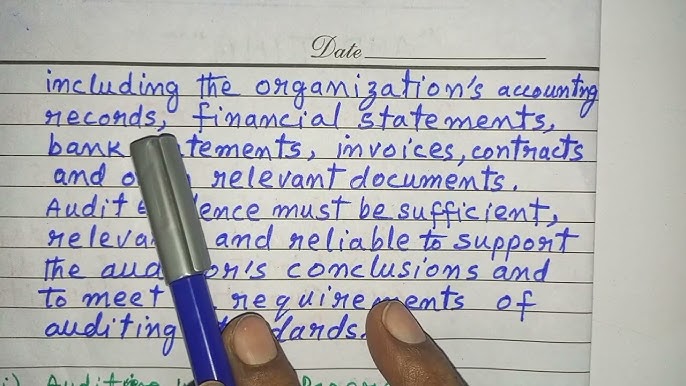 Date
including the organization's accounting
records, financial statements,
bank tements, invoices, contracts
and o relevant documents.
Audit dence must be sufficient,
releva and reliable to support
the aud or's conclusions and
to meet requirements of
auditing dards.
i) Auditing